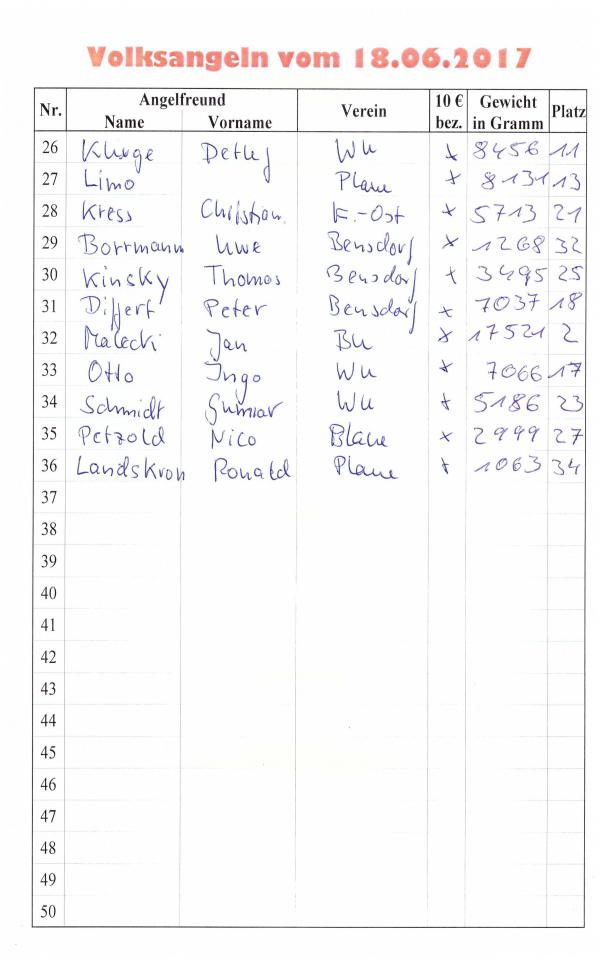 Volksangeln vom 18.06.2017
Nr. Angelfreund Verein 10 € Gewicht Platz
Name Vorname bez. in Gramm
26 Kluge Detlef Wu x 8456 11
27 Limo Plaue x 8131 13
28 Kress Christian K.-Ost x 5713 21
29 Borrmann Uwe Bensdorf x 1268 32
30 Kinsky Thomas Bensdorf x 3495 25
31 Differt Peter Bensdorf x 7037 18
32 Malecki Jan x 17521 2
33 Otto Ingo Wu x 7066 17
34 Schmidt Gunnar Wu x 5186 23
35 Petzold Nico x 2999 27
36 Landskron Ronald Plaue x 1063 34
37
38
39
40
41
42
43
44
45
46
47
48
49
50